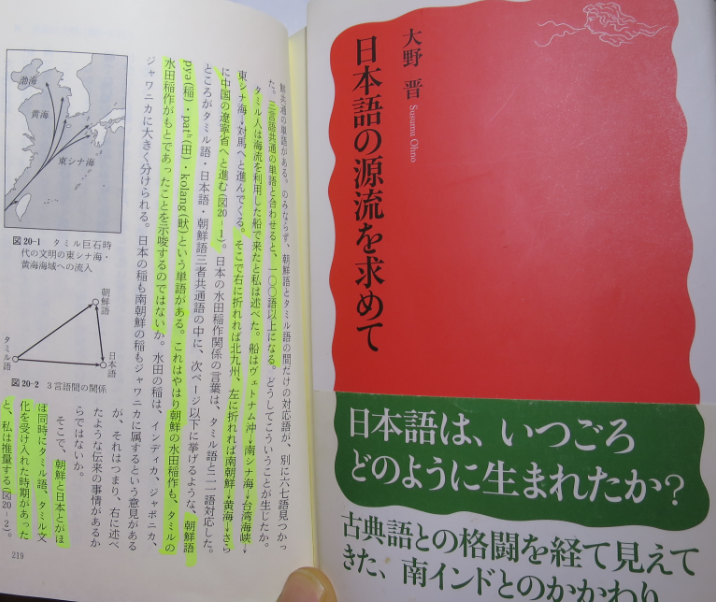 鮮共通の単語がある。のみならず、朝鮮語とタミル語の間だけの対応語が、別に六七語見つかっ
た。三言語共通の単語と合わせると、一〇〇語以上になる。どうしてこういうことが生じたか。
タミル人は海流を利用した船で来たと私は述べた。船はヴェトナム沖→南シナ海→台湾海峡→
東シナ海→対馬へと進んでくる。そこで右に折れれば北九州、左に折れれば南朝鮮→黄海→さら
に中国の遼寧省へと進む(図20-1)。日本の水田稲作関係の言葉は、タミル語と二一語対応した。
ところがタミル語・日本語・朝鮮語三者共通語の中に、次ページ以下に挙げるような、朝鮮語
pyə(稲)・patʰ(田)・kolang(畎)という単語がある。これはやはり朝鮮の水田稲作も、タミルの
水田稲作がもとであったことを示唆するのではないか。水田の稲は、インディカ、ジャポニカ、
ジャワニカに大きく分けられる。日本の稲も南朝鮮の稲もジャワニカに属するという意見がある
が、それはつまり、右に述べ
たような伝来の事情があるか
らではないか。
そこで、朝鮮と日本とがほ
ぼ同時にタミル語、タミル文
化を受け入れた時期があった
と、私は推量する(図20-2)。
渤海
黄海
東シナ海
図20-1 タミル巨石時
代の文明の東シナ海・
黄海海域への流入
朝鮮語
タミル語
日本語
図20-2 3言語間の関係
219
大野 晋
Susumu Ohno
日本語の源流を求めて
日本語は、いつごろ
どのように生まれたか?
古典語との格闘を経て見えて
きた、南インドとのかかわり